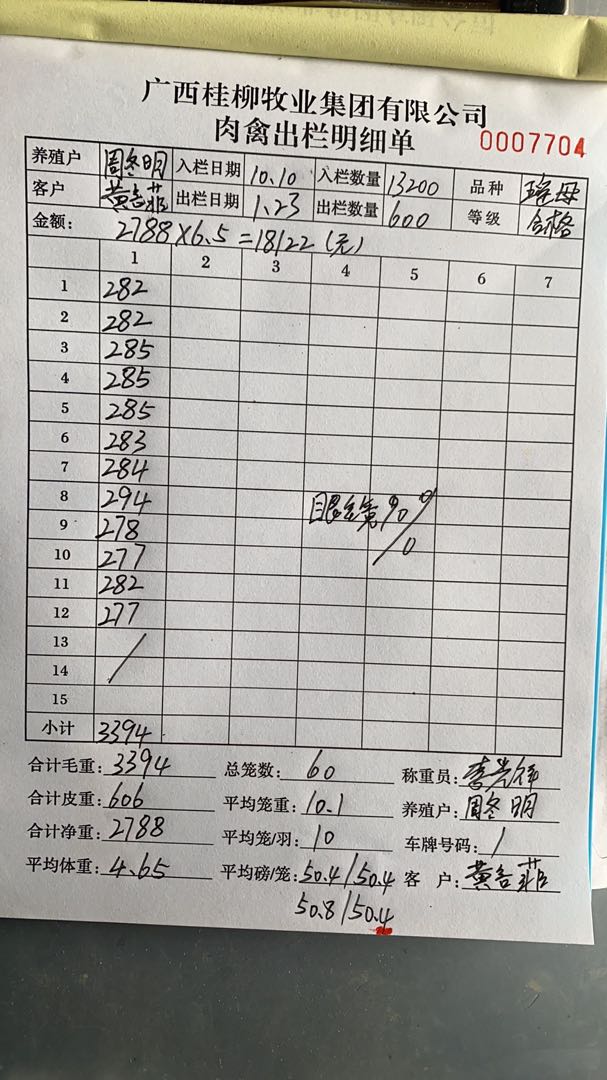 广西桂柳牧业集团有限公司
肉禽出栏明细单 0007704
养殖户 周冬明 入栏日期 10.10 入栏数量 13200 品种 瑶母
客户 出栏日期 1.23 出栏数量 600 等级 合格
金额: 2788×6.5=18122(元)
1 2 3 4 5 6 7
1 282
2 282
3 285
4 285
5 285
6 283
7 284
8 294
9 278
10 277
11 282
12 277
13
14
15
小计 3394
合计毛重: 3394 总笼数: 60 称重员:
合计皮重: 606 平均笼重: 10.1 养殖户: 周冬明
合计净重: 2788 平均笼/羽: 10 车牌号码: /
平均体重: 4.65 平均磅/笼: 50.4/50.4 客户:
50.8/50.4